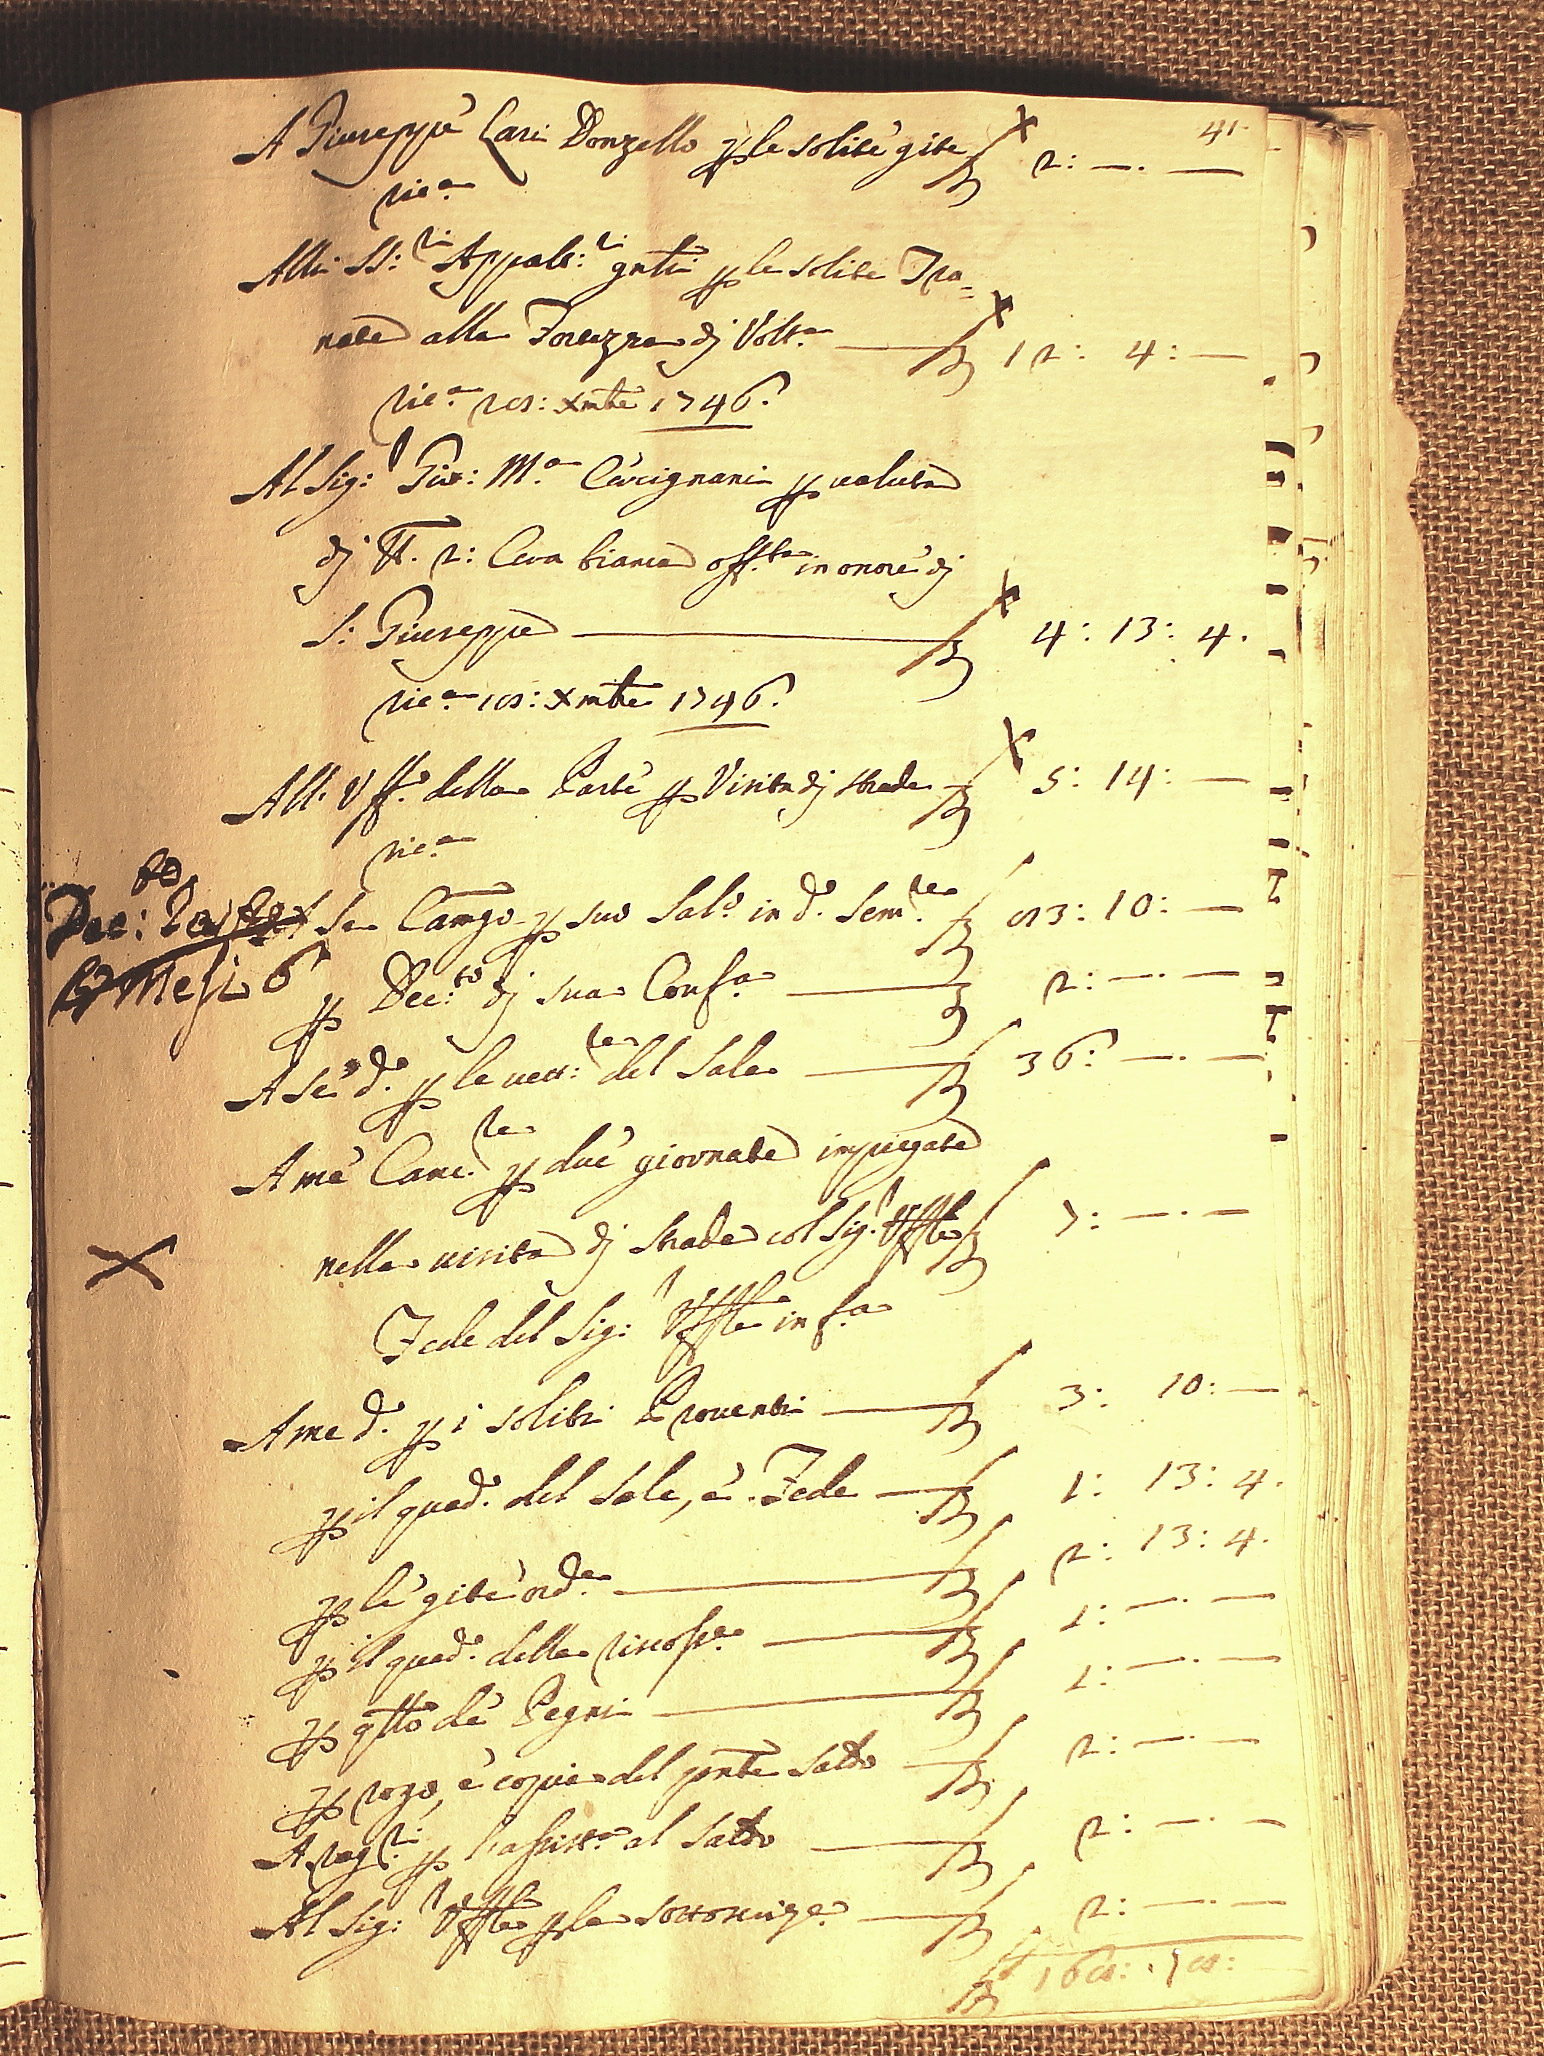 41
A Giuseppe Cari Donzello p le solite gite 2: —. —
ric.a
Alli SS:ri Appalt:ri gnli p le solite Tra=
nate alla Fortezza di Volt.a 12: 4: —
ric.a xmbre 1746.
Al Sig:r Gio: M.a Carignani p valuta
di tt. 2: Cera bianca off.ta in onore di
S: Giuseppe 4: 13: 4.
ric.a xmbre 1746.
Alli Uff. della Parte p Visita di strade 5: 14: —
ric.a
A Se Canc.o p suo Sal.o in d.o Sem.re 13: 10: —
Dec:to
p Mesi 6
p Dec:to di sua Conf.a 2: —. —
A Se d.o p le vett:re del Sale 36: —. —
A me Canc.re p due giornate impiegate
nella visita di strade col Sig.r Uffle 7: —. —
Fede del Sig:r Uffle in f.a
A me d.o p i soliti Proventi 3: 10: —
p il quad.o del Sale, e Fede 1: 13: 4.
p le gite ord.e 2: 13: 4.
p il quad.o della riscoss.e 1: —. —
p qtto de Pegni 1: —. —
p rogo, e copia del pnte Saldo 2: —. —
A Rag:ri p l'assist.a al Saldo 2: —. —
Al Sig:r Uffle p la soscrizz.e 2: —. —